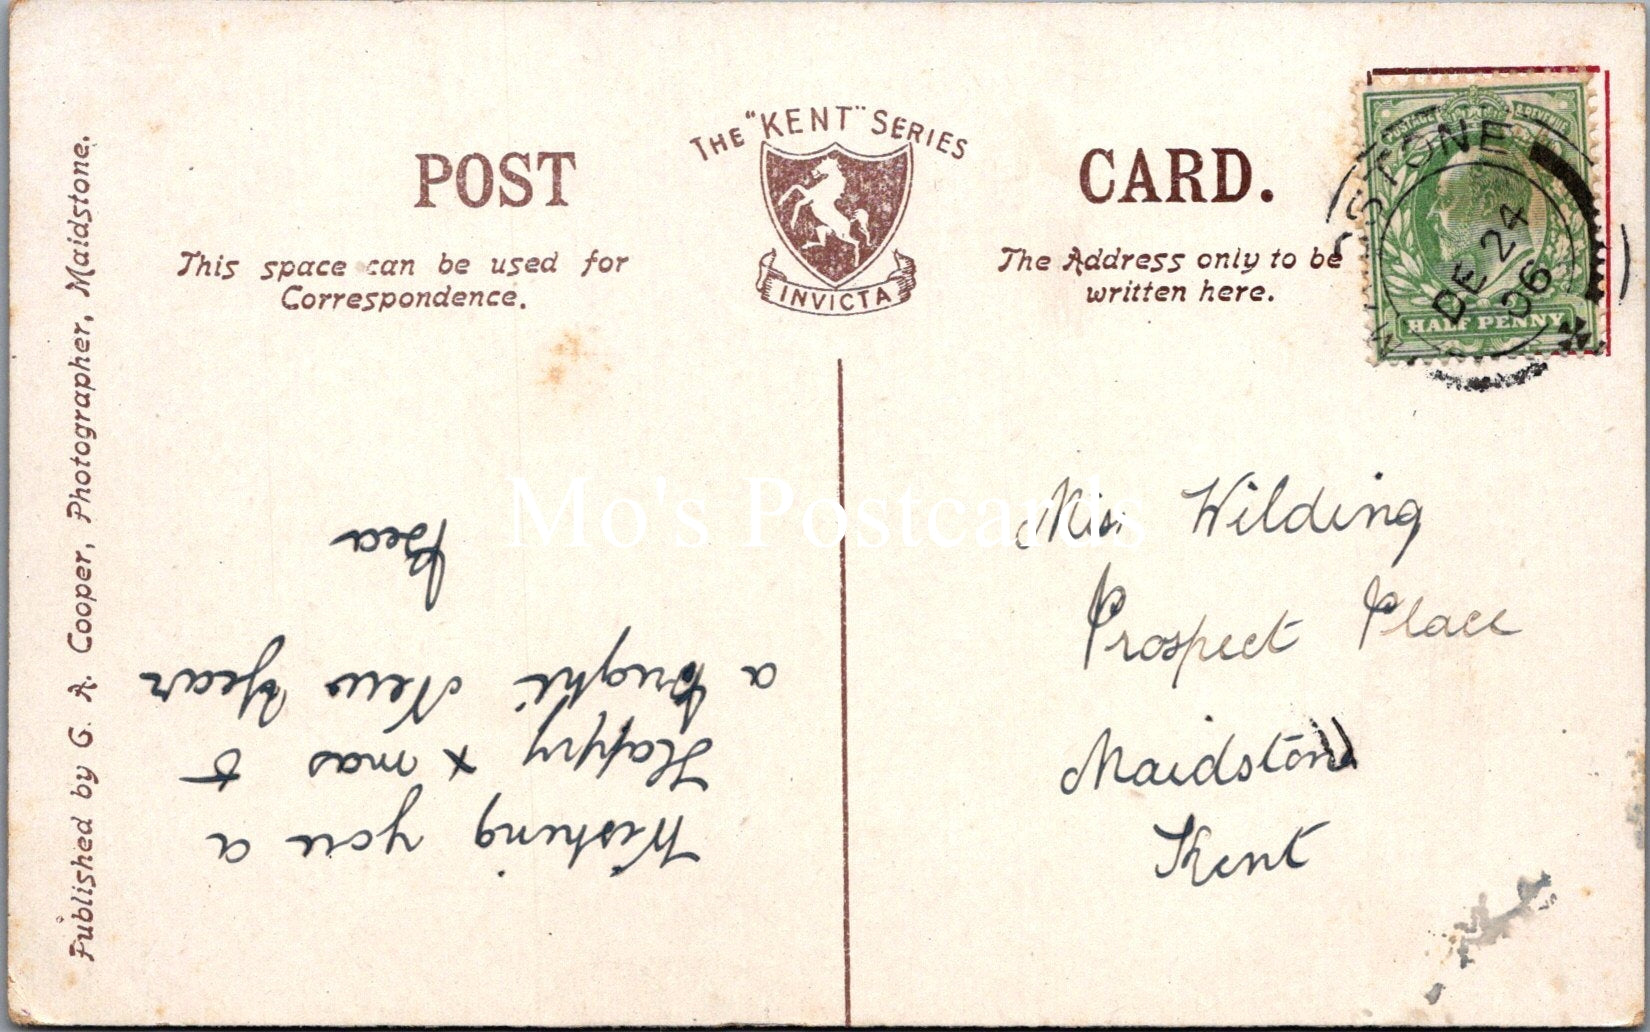 THE "KENT" SERIES
POST CARD.
INVICTA
This space can be used for
Correspondence.
The Address only to be
written here.
POSTAGE & REVENUE
HALF PENNY
STONE
DE 24
06
Published by G. A. Cooper, Photographer, Maidstone.
Wishing you a
Happy Xmas &
a bright New Year
Bea
Miss Wilding
Prospect Place
Maidstone
Kent
Mo's Postcards